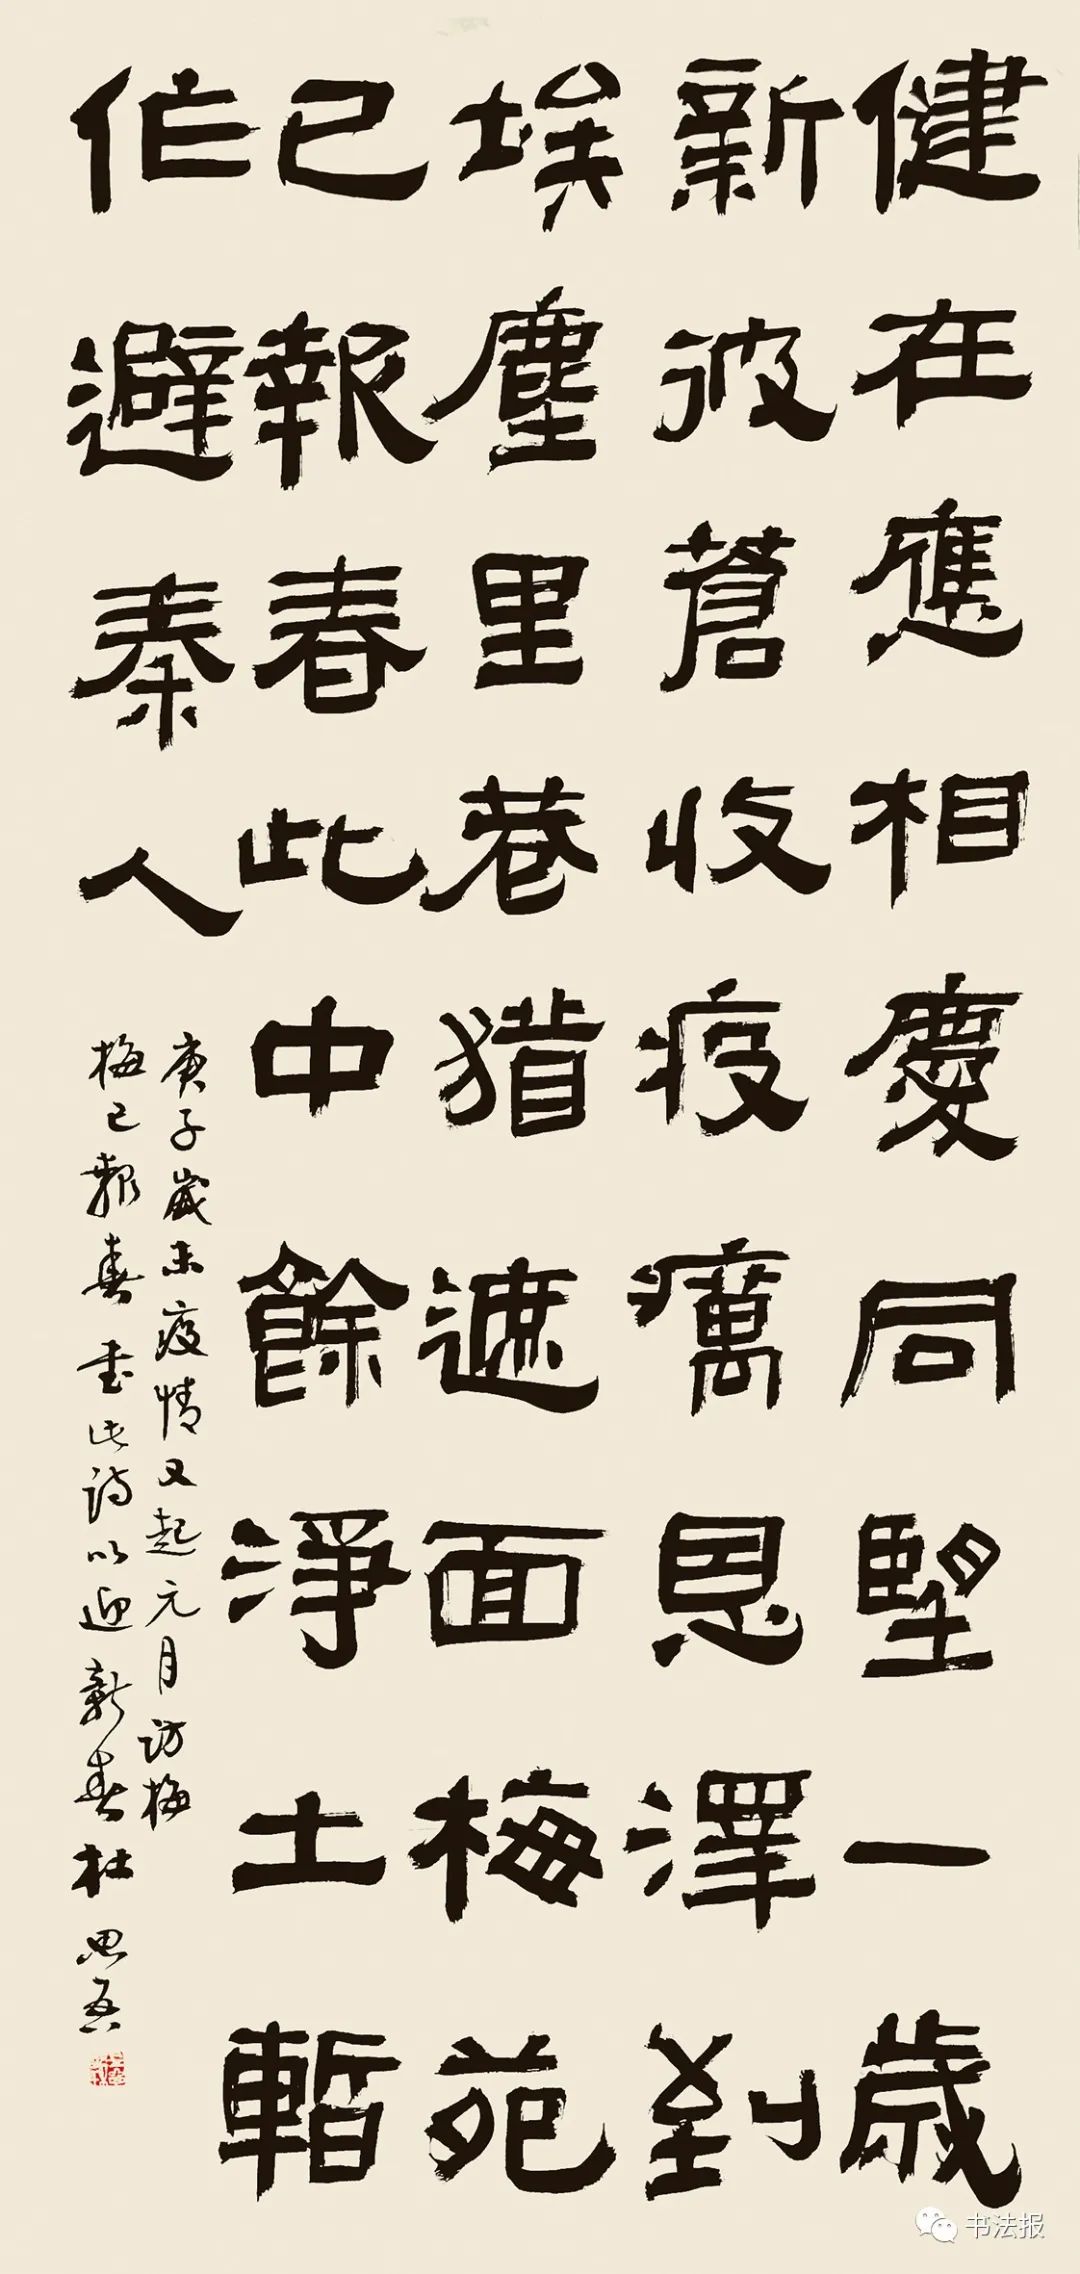 健在應相慶同朢一歲
新彼蒼收疫癘恩澤到
埃塵里巷猶遮面梅苑
已報春此中餘淨土暫
作避秦人
庚子歲末疫情又起元月訪梅
梅已報春書此詩以迎新春杜思吾
书法报